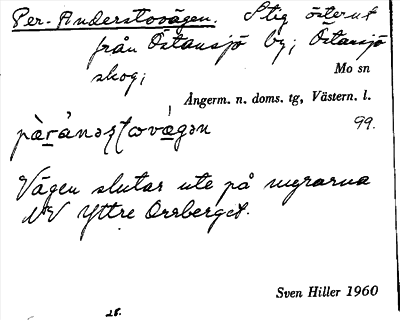 Per-Anderstovägen. Stig österut
från Östansjö by; Östansjö
skog;
Mo sn
Ångerm. n. doms. tg, Västern. l.
99.
Vägen slutar ute på myrarna
NV Yttre Orrberget.
Sven Hiller 1960
28.